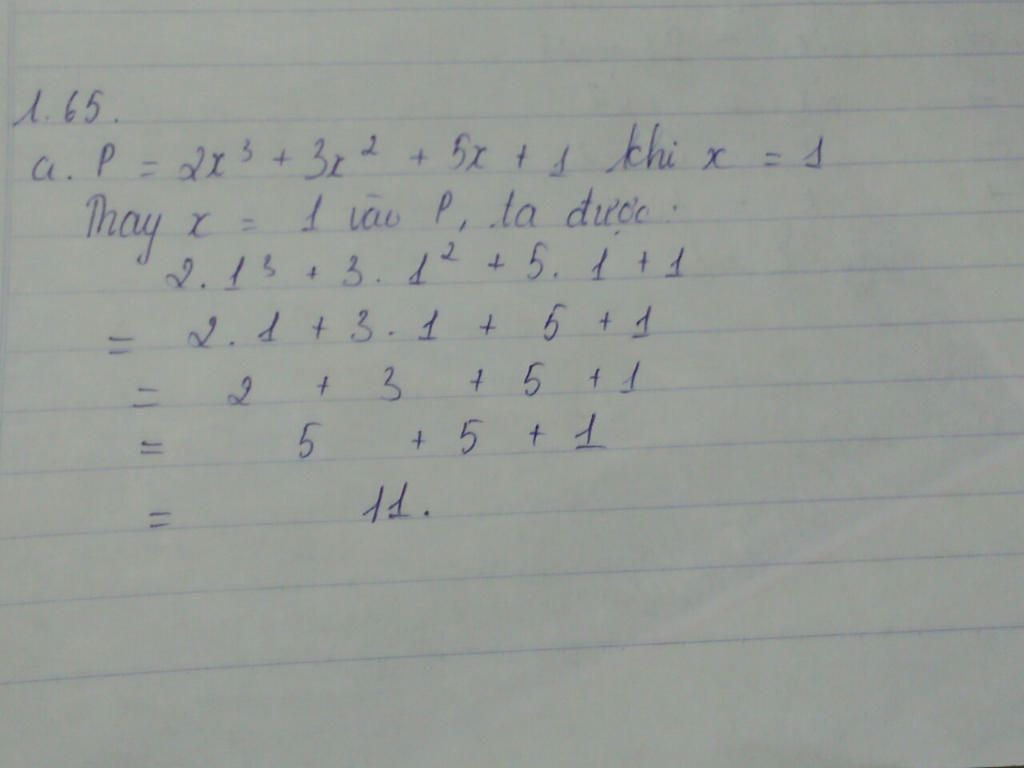 1.65.
a. P = 2x³ + 3x² + 5x + 1 khi x = 1
Thay x = 1 vào P, ta được:
2. 1³ + 3. 1² + 5. 1 + 1
= 2. 1 + 3. 1 + 5 + 1
= 2 + 3 + 5 + 1
= 5 + 5 + 1
= 11.